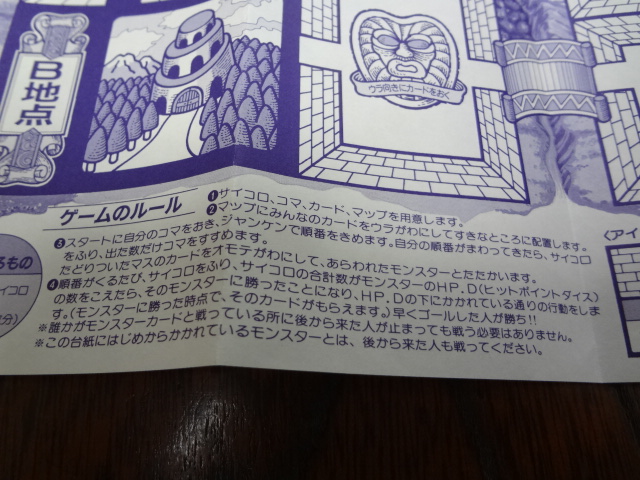 B地点
ウラ向きにカードをおく
ゲームのルール
❶サイコロ、コマ、カード、マップを用意します。
❷マップにみんなのカードをウラがわにしてすきなところに配置します。
❸スタートに自分のコマをおき、ジャンケンで順番をきめます。自分の順番がまわってきたら、サイコロ
をふり、出た数だけコマをすすめます。
たどりついたマスのカードをオモテがわにして、あらわれたモンスターとたたかいます。
❹順番がくるたび、サイコロをふり、サイコロの合計数がモンスターのHP.D(ヒットポイントダイス)
の数をこえたら、そのモンスターに勝ったことになり、HP.Dの下にかかれている通りの行動をしま
す。(モンスターに勝った時点で、そのカードがもらえます。)早くゴールした人が勝ち!!
※誰かがモンスターカードと戦っている所に後から来た人が止まっても戦う必要はありません。
※この台紙にはじめからかかれているモンスターとは、後から来た人も戦ってください。
るもの
イコロ
分)
〈アイ